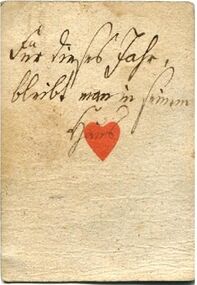 Für dieses Jahr,
bleibt man in seinem
Haus